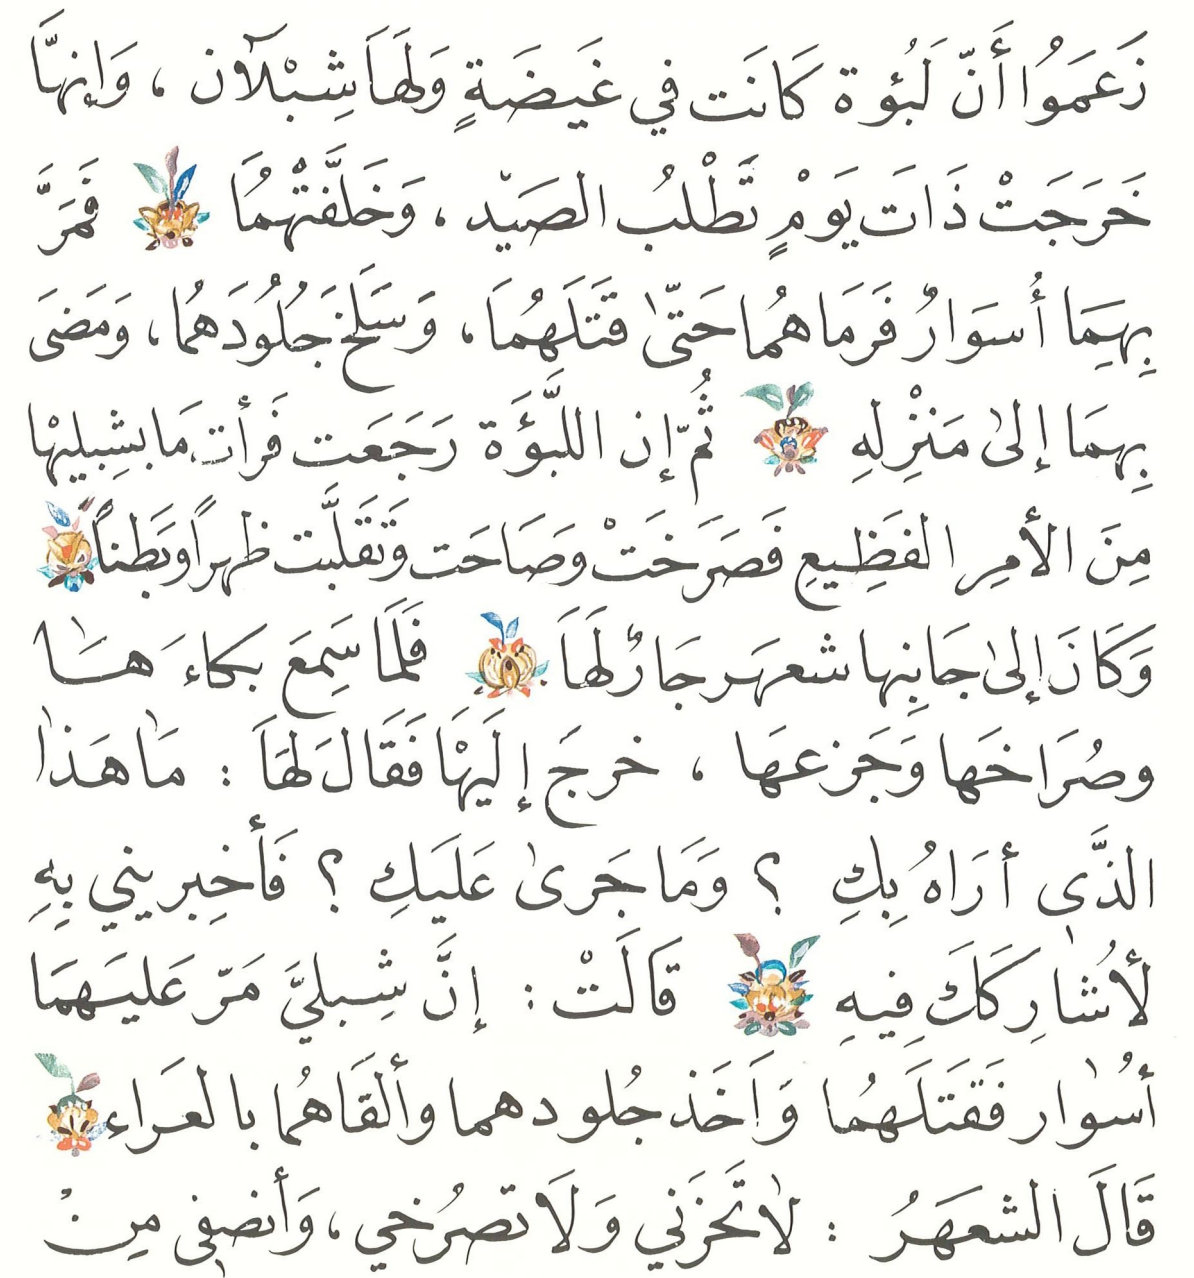 زَعَمَوُا أَنّ لَبُؤة كَانَت في غَيضَةٍ وَلَهَا شِبْلَآن ، وَإنهَّا
خَرَجَتْ ذَاتَ يَوْمٍ تَّطْلبُ الصَيّد ، وَخَلَّفتْهُمَا فَمَرَّ
بِهِمَا أُسوَارٌ فَرَمَاهُما حَتّىٰ قتَلَهُمَا ، وَسَلخَ جُلُودَهُما ، وَمَضىَ
بِهمَا إلىٰ مَنْزِلهِ ثُمّ إن اللَّبؤَة رَجَعَت فَرأت مَا بشِبليْها
مِنَ الأمرِ الفَظِيعِ فَصَرَخَتْ وصَاحَت وَتقَلَّبت ظهراً وبَطناً
وَكَانَ إلىٰ جَانِبها شعهَر جَارٌ لَهَا فَلَمَا سَمِعَ بكاءَ هَـا
وصُرَاخَها وَجَزعهَا ، خرجَ إلَيْهَا فَقَال لَهَا : مَا هَذا
الذَّى أرَاهُ بكِ ؟ وَمَا جَرىٰ عَلَيكِ ؟ فَأخبِريني بِهِ
لأشُارِكَكَ فِيهِ قَالَتْ : إنَّ شِبليَّ مَرّ عَليهَمَا
أسُوار فَقتَلَهُمَا وَاَخَذ جُلودهما وألقّاهُما بالعَراء
قَالَ الشعهَرُ : لاٰ تَحْزَني وَلَا تصرُخي ، وَأنصفي مِنْ